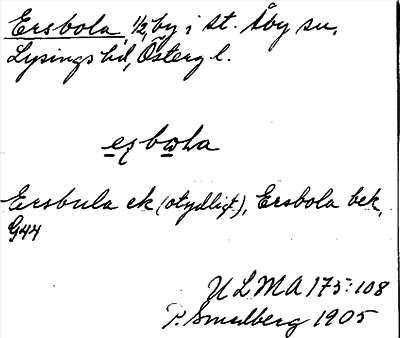 Ersbola, 1/2 by i St. Åby sn,
Lysings hd, Österg l.
Ersbula ek (otydligt), Ersbola bek,
G44
ULMA 175:108
P. Smedberg 1905